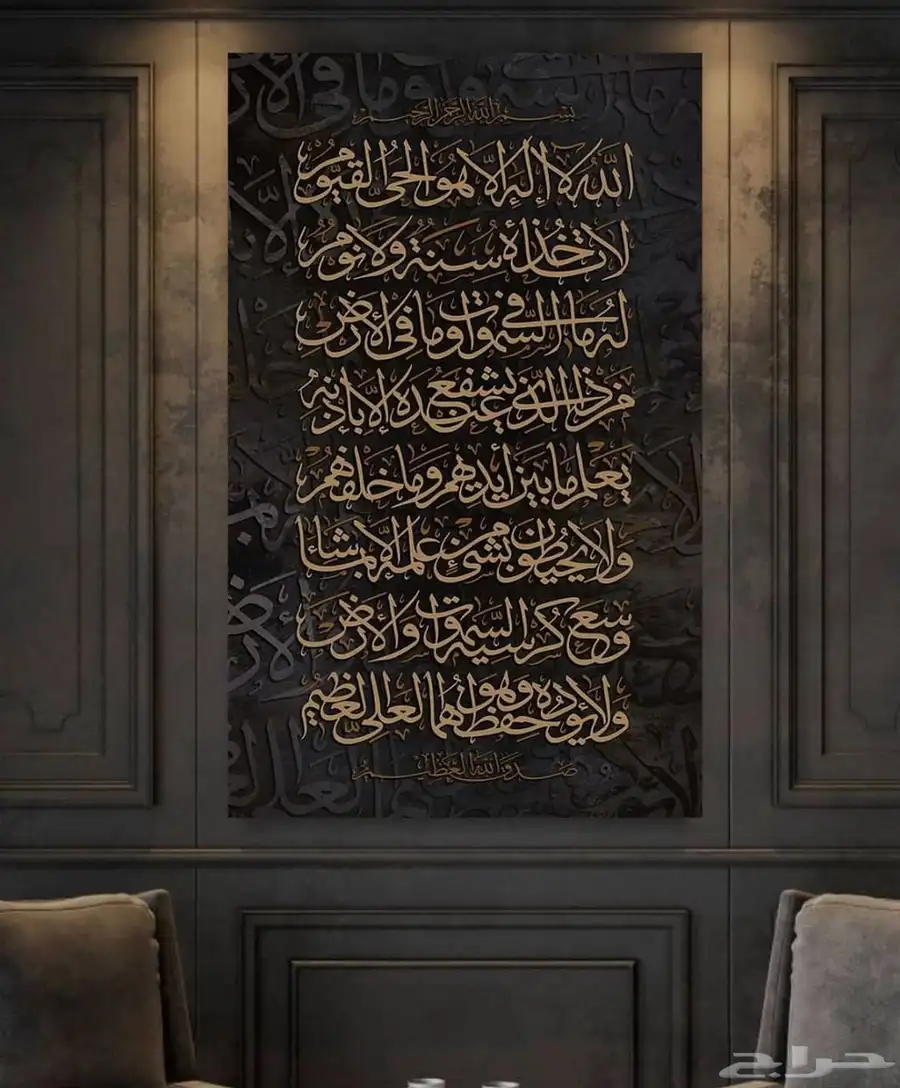 بسم الله الرحمن الرحيم
الله لا إله إلا هو الحي القيوم
لا تأخذه سنة ولا نوم
له ما في السموات وما في الأرض
من ذا الذي يشفع عنده إلا بإذنه
يعلم ما بين أيديهم وما خلفهم
ولا يحيطون بشيء من علمه إلا بما شاء
وسع كرسيه السموات والأرض
ولا يؤده حفظهما وهو العلي العظيم
صدق الله العظيم
حراج